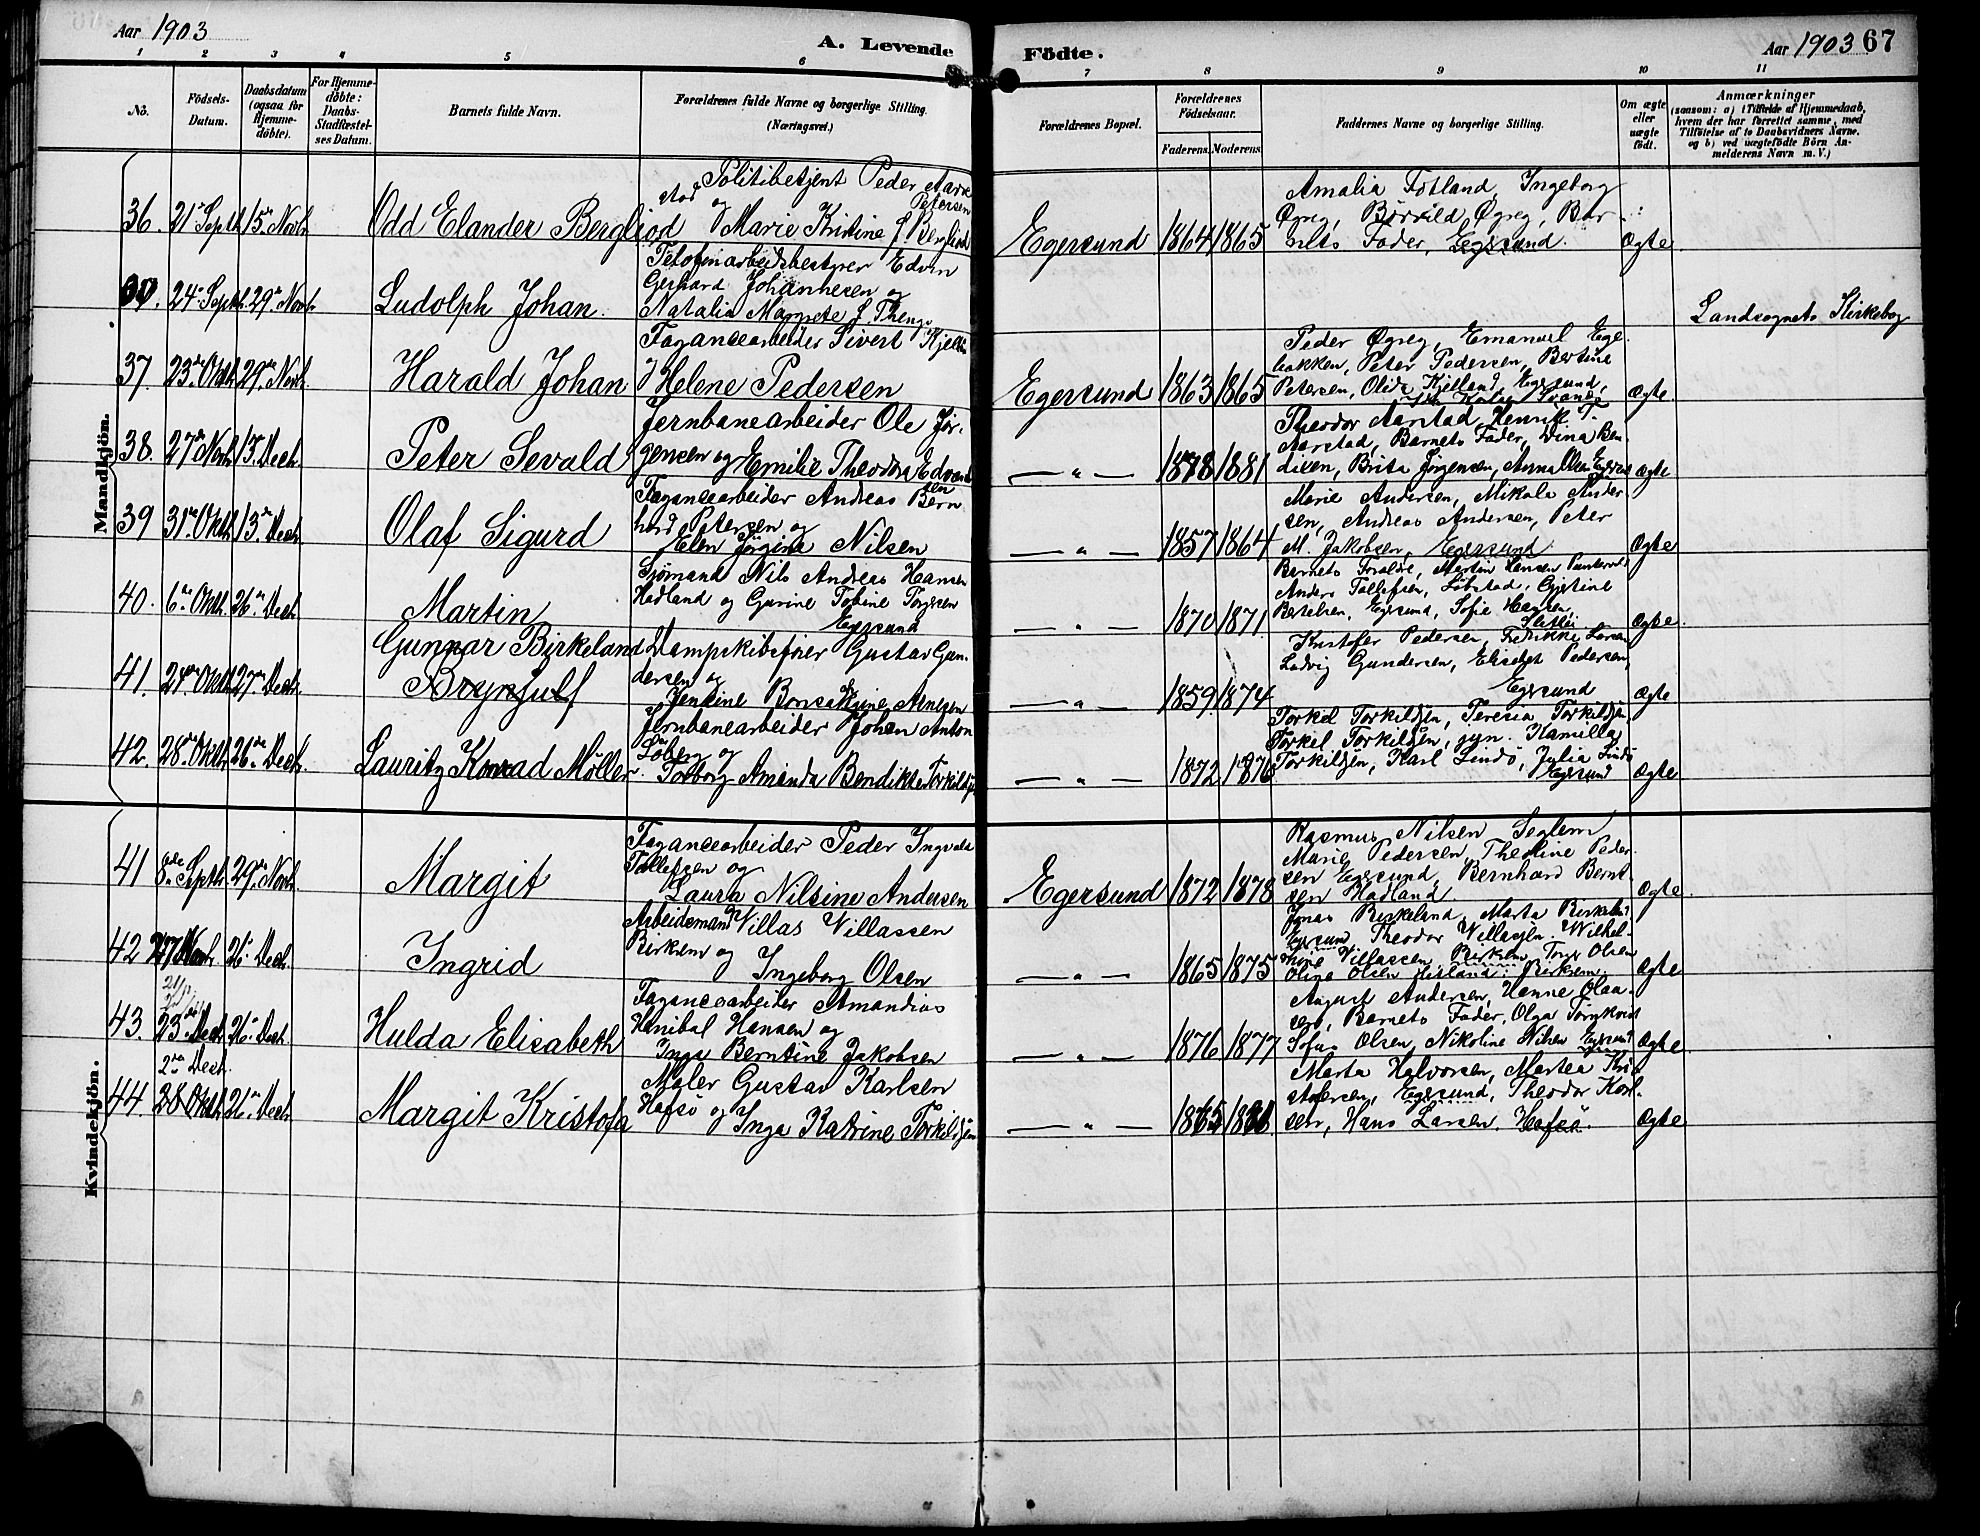 Aar 1903
A. Levende Födte.
Aar 1903 67
1 2 3 4 5 6 7 8 9 10 11
No.
Födsels-Datum.
Daabsdatum (ogsaa for Hjemme-döbte).
For Hjemme-döbte: Daabs-Stadfæstel-ses Datum.
Barnets fulde Navn.
Forældrenes fulde Navne og borgerlige Stilling. (Næringsvei.)
Forældrenes Bopæl.
Forældrenes Födselsaar.
Faderens. Moderens.
Faddernes Navne og borgerlige Stilling.
Om ægte eller uægte födt.
Anmærkninger
(saasom: a) i Tilfælde af Hjemmedaab, hvem der har forrettet samme, med Tilföielse af to Daabsvidners Navne, og b) ved uægtefödte Börn An-melderens Navn m. V.)
Mandkjön.
36. 21de Septbr 15de Novbr
Odd Elander Bergliod
Politibetjent Peder Aar
stad og Petersen
Marie Kristine f. Bergliod
Egersund 1864 1865
Amalia Fotland, Ingeborg
Øgreg, Börrild Øgreg, Bar-
nets Fader, Egersund.
Ægte
24de Septbr. 29de Novbr.
Ludolph Johan.
Telefonarbeidsbestyrer Edvin
Gerhard Johannesen og
Natalia Magrete f. Thengs
Landsognets Kirkebog
37. 23de Oktbr 29de Novbr.
Harald Johan
Fayancearbeider Sivert Kjel
Helene Pedersen
Egersund 1863 1865
Peder Øgreg, Emanuel Ege-
bakken, Peter Pedersen, Bertine
Petersen, Olida Kjelland, Egersund,
Ægte.
38. 27de Novbr 13. Decbr.
Peter Sevald
Jernbanearbeider Ole Jör-
gensen og Emilie Theodora Edvard
sen
— " — 1878 1881
Theodor Aarstad, Henrik T.
Aarstad, Barnets Fader, Dina Ben-
dixen, Brita Jörgensen, Anna Olsen Egersund
Ægte
39 31de Oktbr. 13de Decbr.
Olaf Sigurd
Fayancearbeider Andreas Bern
hard Petersen og
Elen Jörgine Nilsen
— " — 1857 1864
Marie Andersen, Mikale Ander-
sen, Andreas Andersen, Peter
M. Jakobsen, Egersund
Ægte
40. 6te Oktbr. 26de Decbr.
Martin
Sjömand Nils Andreas Hansen
Hadland og Gurine Tobine Torgersen
Egersund
— " — 1870 1871.
Barnets Forældre, Martin Hansen
Anders Tollefsen, Löbstad, Gjertine
Bertelsen, Egersund, Sofie Hansen,
Sletten
Ægte.
41. 24de Oktbr 27de Decbr.
Gunnar Birkeland
Brynjulf
Dampskibsförer Gustav Gun-
dersen og
Jensine Arnesen
— " — 1859. 1874
Kristofer Pedersen, Fredrikke Larsen
Ludvig Gundersen, Elisabet Pedersen,
Egersund
Ægte
42. 28de Oktbr. 26de Decbr.
Lauritz Konrad Möller
Jernbanearbeider Johan Anton
Löberg og
Tolborg Amanda Bendikte Torkildsen
— " — 1872 1876
Torkel Torkildsen, Teresia Torkildsen
Torkel Torkildsen, jun. Kamilla
Torkildsen, Karl Lindö, Julia Lindö
Egersund
Ægte
Kvindekjön.
41 8de Septbr. 29de Novbr.
Margit
Fayancearbeider Peder Ingvald
Tollefsen og
Laura Nilsine Andersen
Egersund 1872 1878
Rasmus Nilsen Seglem
Marie Pedersen, Theoline Peder-
sen Egersund, Bernhard Bernt-
sen Hadland
Ægte.
42 27de Novbr 26de Decbr.
Ingrid
Arbeidsmand Villas Villassen
Birkrem og
Ingeborg Olsen
— " — 1865 1875
Jonas Birkeland, Marta Birkeland
Egersund Theodor Villassen. Wilhel-
mine Villassen Birkrem Tore Olsen
Olina Olsen Birkrem.
Ægte
43. 23de Decbr 26de Decbr
Hulda Elisabeth
Fayancearbeider Amandius
Hanibal Hansen og
Inga Berntine Jakobsen
— " — 1876 1877
August Andersen, Hanne Olaa-
sen, Barnets Fader, Olga Törnkvist
Sofus Olsen, Nikoline Nilsen Egersund
Ægte.
2den Decbr.
44 28 Oktbr 26de Decbr
Margit Kristofa
Maler Gustav Karlsen
Hafsö og Inga Katrine Torkildsen
— " — 1865 1881
Marta Halvorsen, Martea Kri-
stofersen, Egersund, Theodor Karl-
sen, Hans Larsen. Hafsö.
Ægte